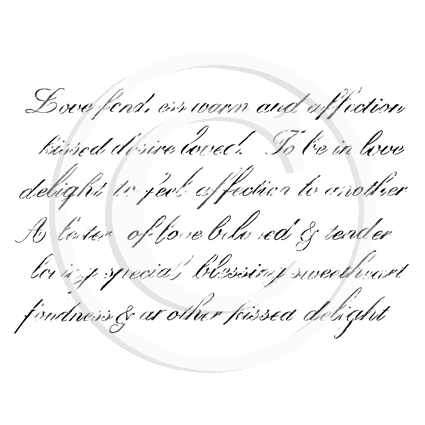 Love fondness warm and affection
kissed desire loved. To be in love
delight to feel affection to another
A of love beloved & tender
loving special blessing sweetheart
fondness & another kissed delight